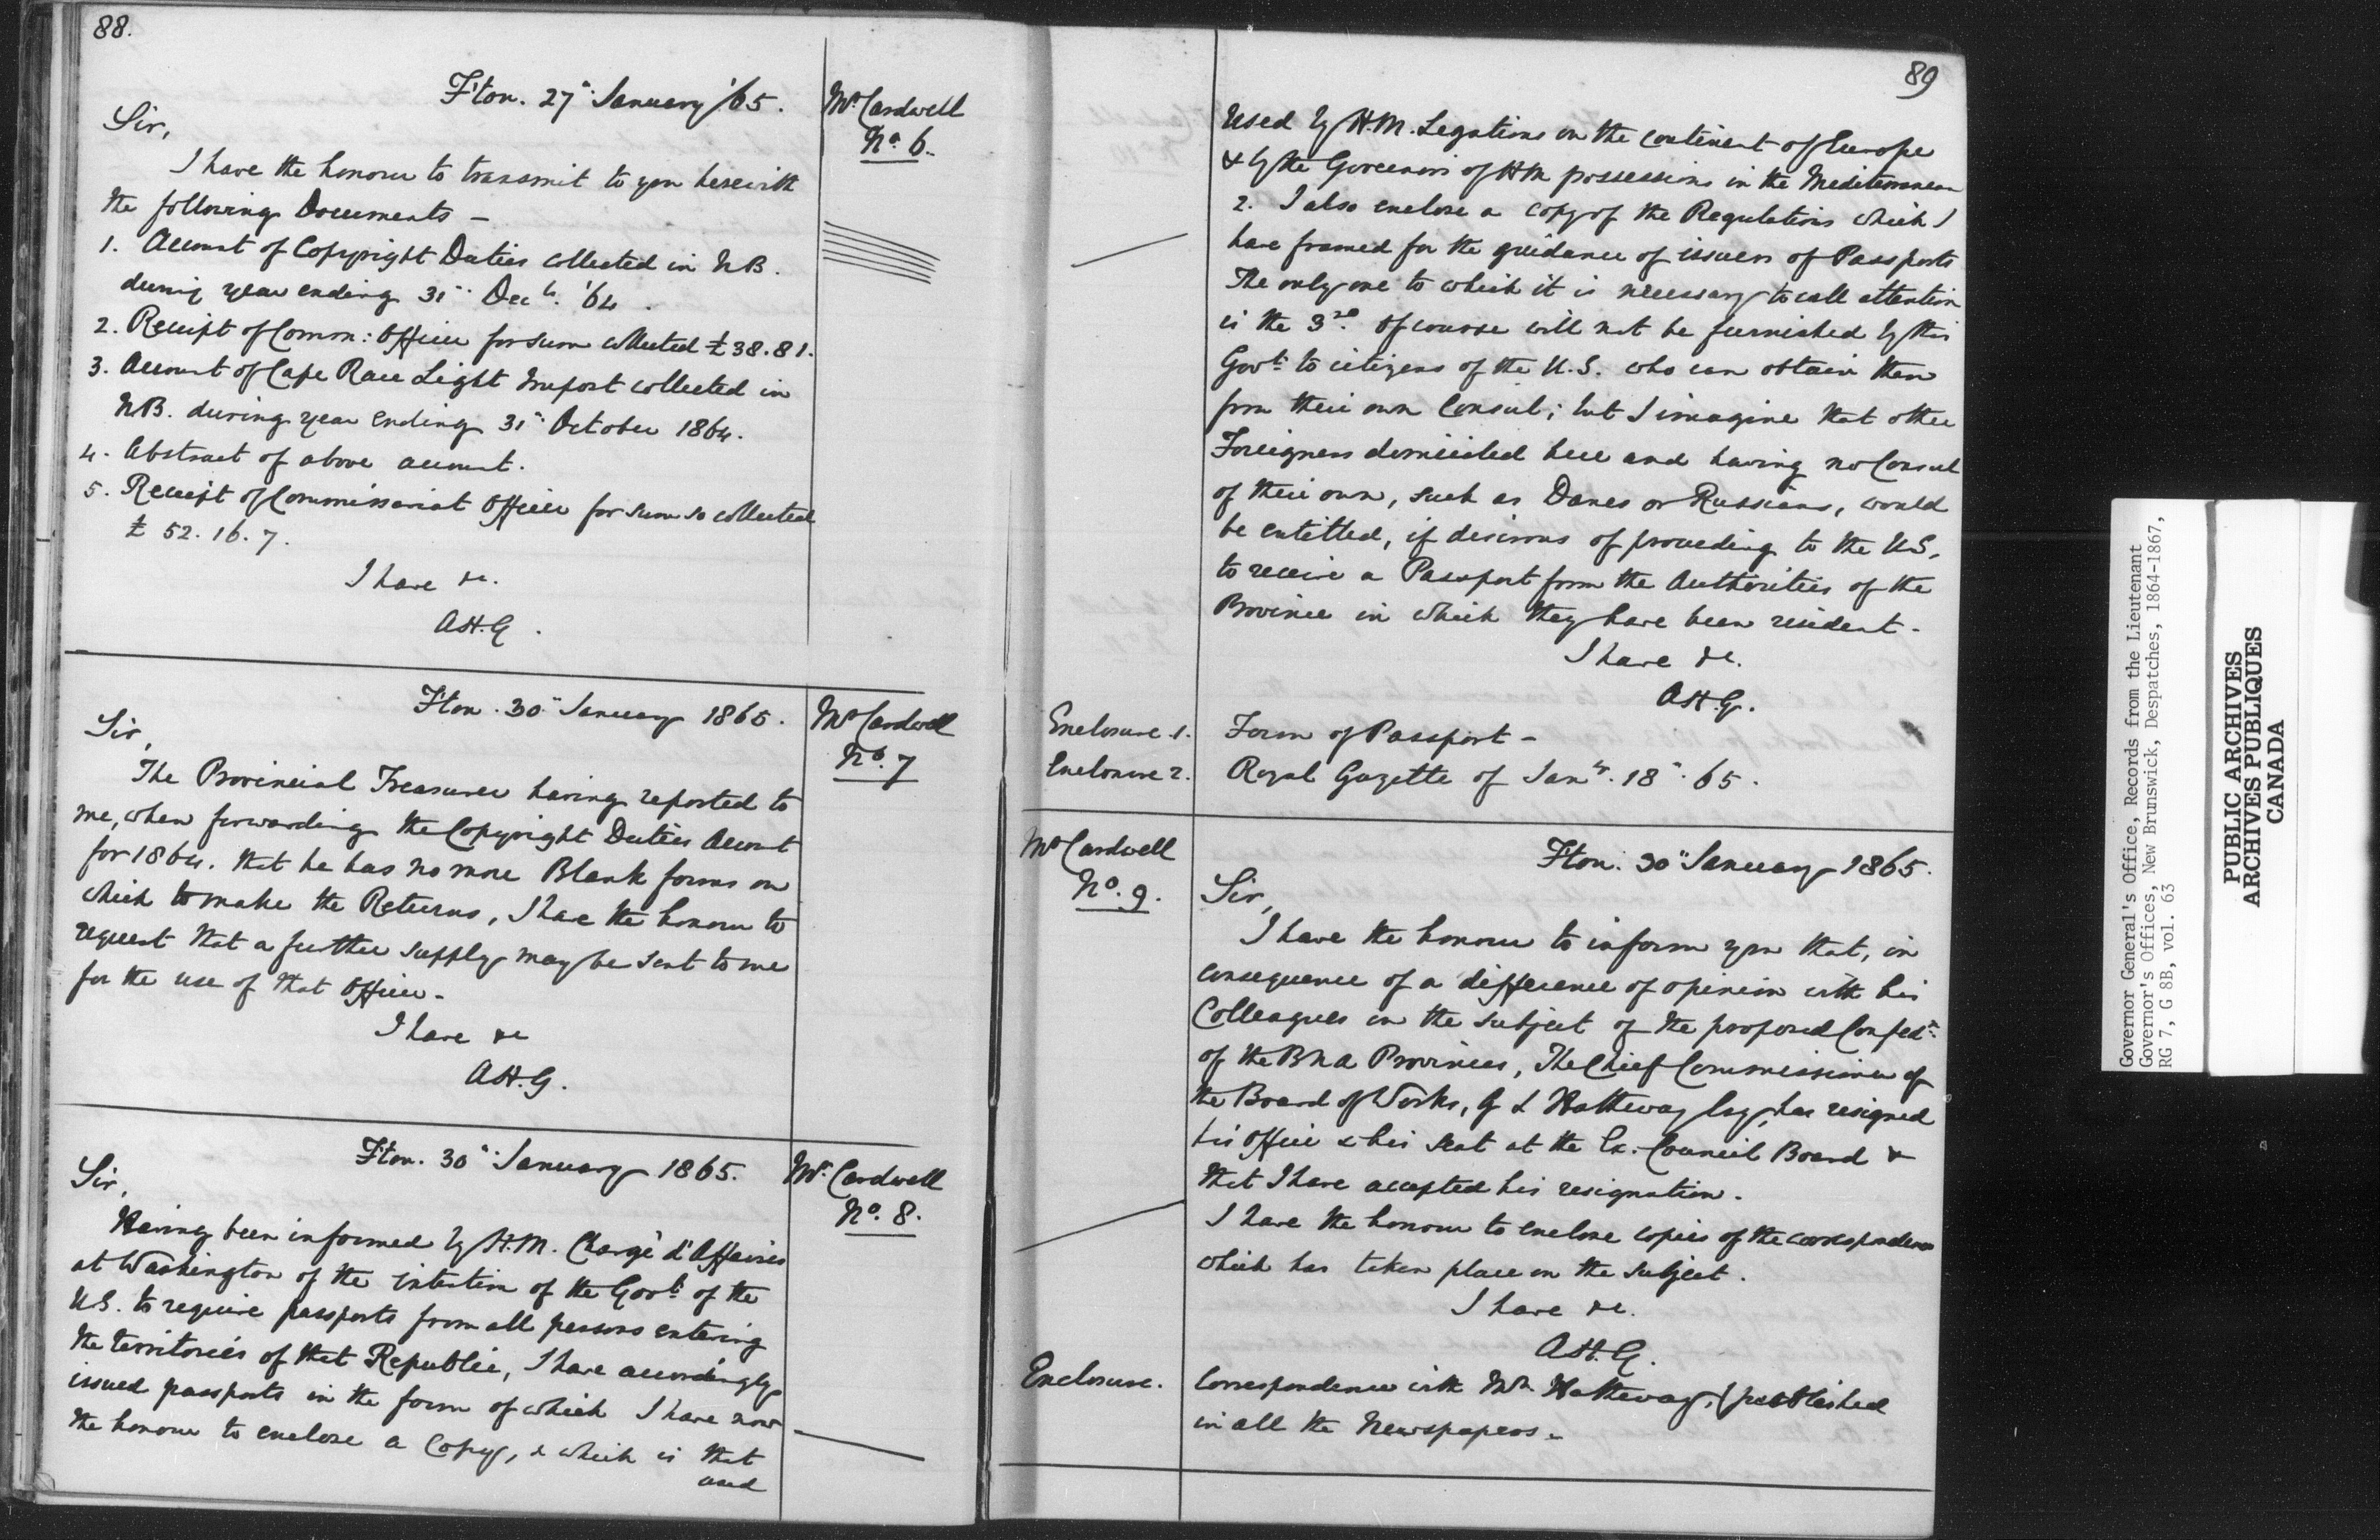 88.
F'ton. 27" January '65.
Mr Cardwell
No. 6.
Sir,
I have the honour to transmit to you herewith
the following Documents —
1. Account of Copyright Duties collected in N.B.
during year ending 31" Decr. '64.
2. Receipt of Comm: Officer for sum collected £38.8 1.
3. Account of Cape Race Light Impost collected in
N.B. during year ending 31" October 1864.
4. Abstract of above account.
5. Receipt of Commissariat Officer for sum so collected
£ 52. 16. 7.
I have &c.
A.H.G.
F'ton. 30" January 1865.
Mr Cardwell
No. 7
Sir,
The Provincial Treasurer having reported to
me, when forwarding the Copyright Duties Account
for 1864. that he has no more Blank forms on
which to make the Returns, I have the honour to
request that a further supply may be sent to me
for the use of that Officer.
I have &c
A.H.G.
F'ton. 30" January 1865.
Mr. Cardwell
No. 8.
Sir,
Having been informed by H.M. Chargé d'Affaires
at Washington of the intention of the Govt. of the
U.S. to require passports from all persons entering
the territories of that Republic, I have accordingly
issued passports in the form of which I have now
the honour to enclose a Copy, & which is that
used
89
Used by H.M. Legations on the continent of Europe
& by the Governors of HM possessions in the Mediterranean
2. I also enclose a copy of the Regulations which I
have framed for the guidance of issuers of Passports
The only one to which it is necessary to call attention
is the 3rd. Of course will not be furnished by this
Govt. to citizens of the U.S. who can obtain them
from their own Consul; but I imagine that other
Foreigners domiciled here and having no Consul
of their own, such as Danes or Russians, would
be entitled, if desirous of proceeding to the U.S.
to receive a Passport from the Authorities of the
Province in which they have been resident.
I have &c.
A.H.G.
Enclosure 1. Form of Passport —
Enclosure 2. Royal Gazette of Jany. 18". 65.
Mr Cardwell
No. 9.
F'ton. 30" January 1865.
Sir,
I have the honour to inform you that, in
consequence of a difference of opinion with his
Colleagues on the subject of the proposed Confedn.
of the B N A Provinces, The Chief Commissioner of
the Board of Works, G L Hatheway Esq, has resigned
his office & his seat at the Ex. Council Board &
that I have accepted his resignation.
I have the honour to enclose copies of the correspondence
which has taken place on the subject.
I have &c.
A.H.G.
Enclosure. Correspondence with Mr. Hatheway, (published
in all the Newspapers.
Governor General's Office, Records from the Lieutenant
Governor's Offices, New Brunswick, Despatches, 1864-1867,
RG 7, G 8B, vol. 63
PUBLIC ARCHIVES
ARCHIVES PUBLIQUES
CANADA